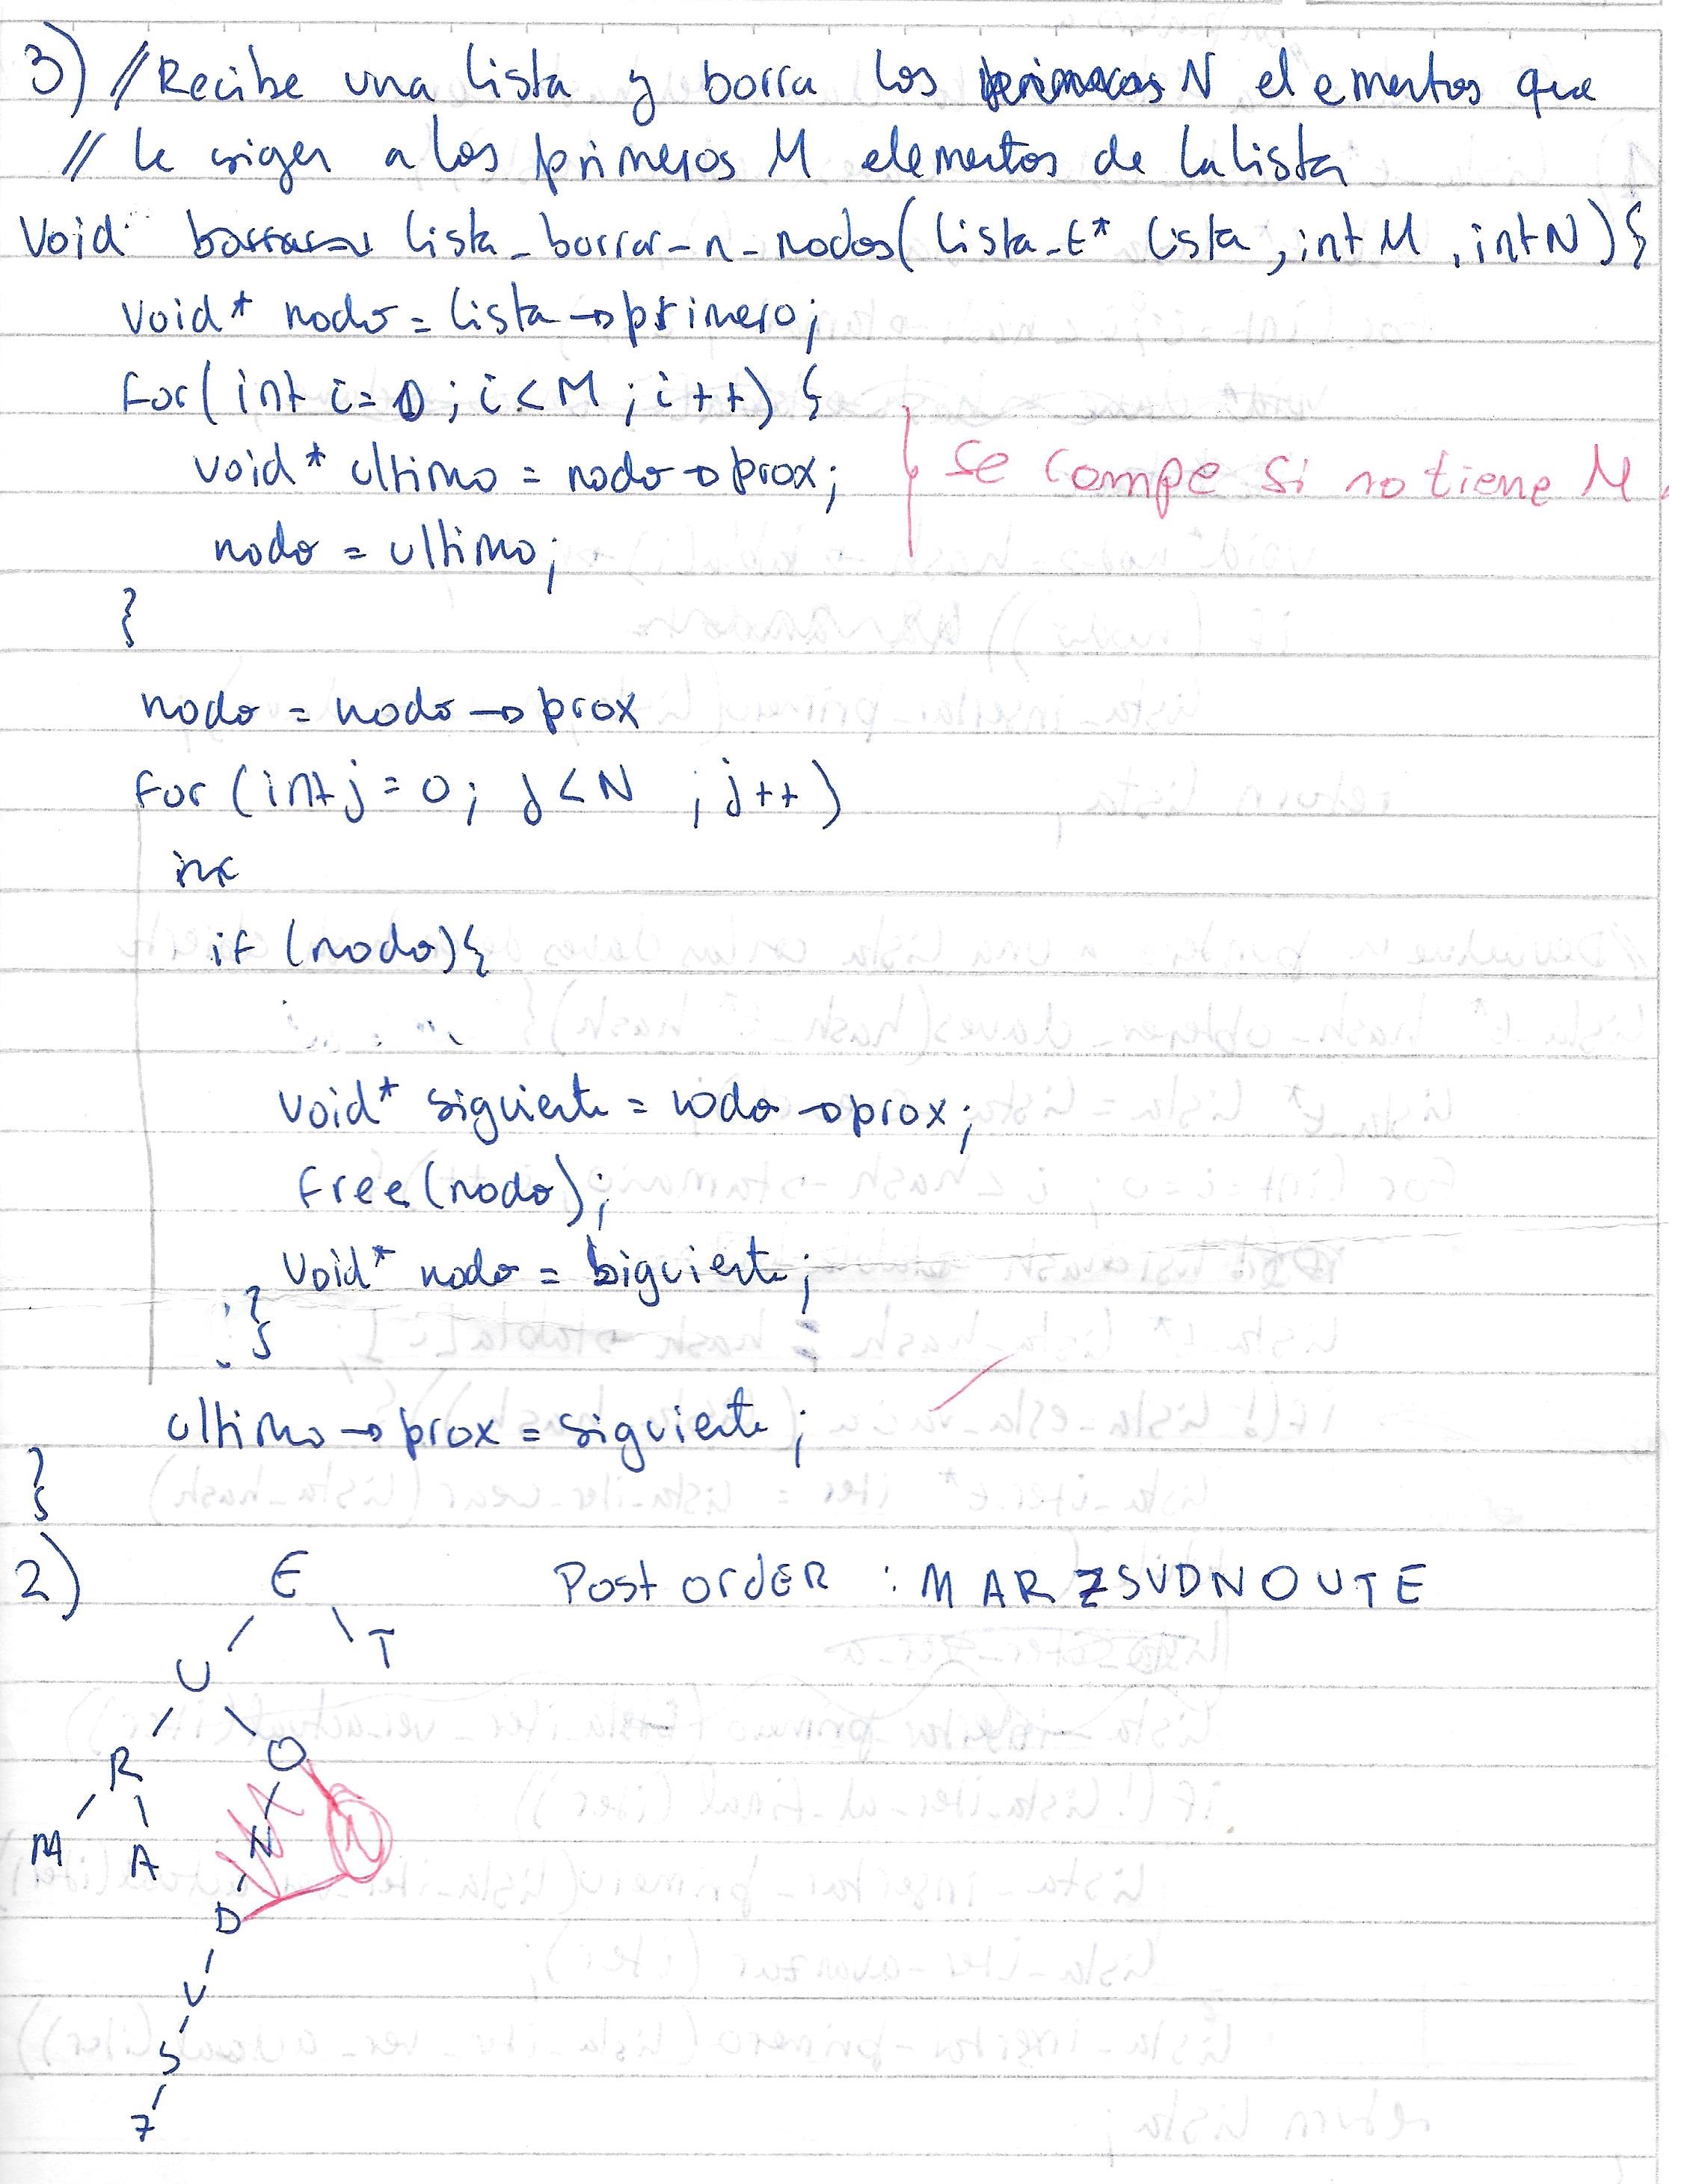 3) //Recibe una lista y borra los N elementos que
// le sigen a los primeros M elementos de la lista
Void lista_borrar_n_nodos(lista_t* lista, int M, int N){
Void* nodo = lista→primero;
for(int i=0; i<M; i++) {
void* ultimo = nodo→prox;
nodo = ultimo;
}
se rompe si no tiene M
nodo = nodo→prox
for (int j=0; j<N ; j++)
if (nodo){
void* siguiente = nodo→prox;
free(nodo);
Void* nodo = siguiente;
}
ultimo→prox = siguiente;
}
2) E Post ordER : MARZSVDNOUTE
T
U
R O
M A N N
D
V
S
Z